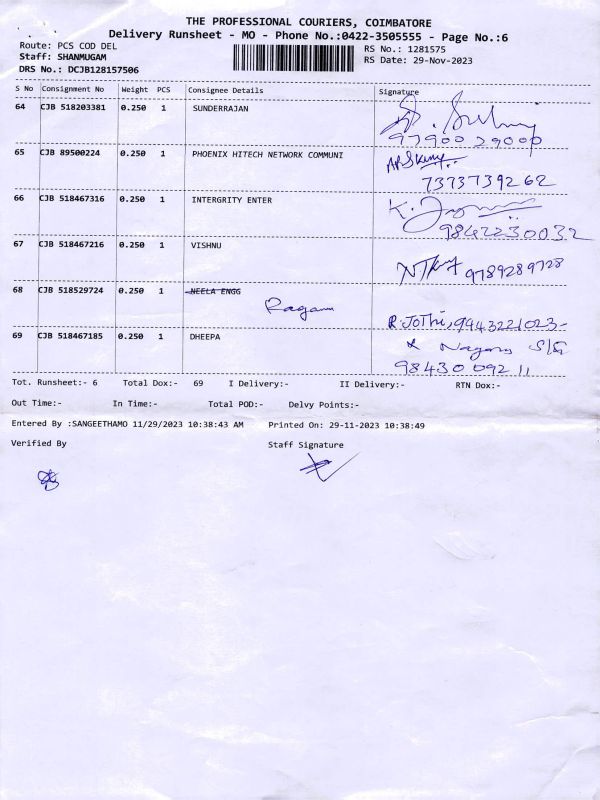 THE PROFESSIONAL COURIERS, COIMBATORE
Delivery Runsheet - MO - Phone No.:0422-3505555 - Page No.:6
Route: PCS COD DEL
RS No.: 1281575
Staff: SHANMUGAM
RS Date: 29-Nov-2023
DRS No.: DCJB128157506
S No Consignment No Weight PCS Consignee Details Signature
64 CJB 518203381 0.250 1 SUNDERRAJAN
9790029000
65 CJB 89500224 0.250 1 PHOENIX HITECH NETWORK COMMUNI
7373739262
66 CJB 518467316 0.250 1 INTERGRITY ENTER
9842230032
67 CJB 518467216 0.250 1 VISHNU
9789289728
68 CJB 518529724 0.250 1 NEELA ENGG
R. JoThi, 9943221023-
69 CJB 518467185 0.250 1 DHEEPA
9843009211
Tot. Runsheet:- 6 Total Dox:- 69 I Delivery:- II Delivery:- RTN Dox:-
Out Time:- In Time:- Total POD:- Delvy Points:-
Entered By :SANGEETHAMO 11/29/2023 10:38:43 AM Printed On: 29-11-2023 10:38:49
Verified By Staff Signature